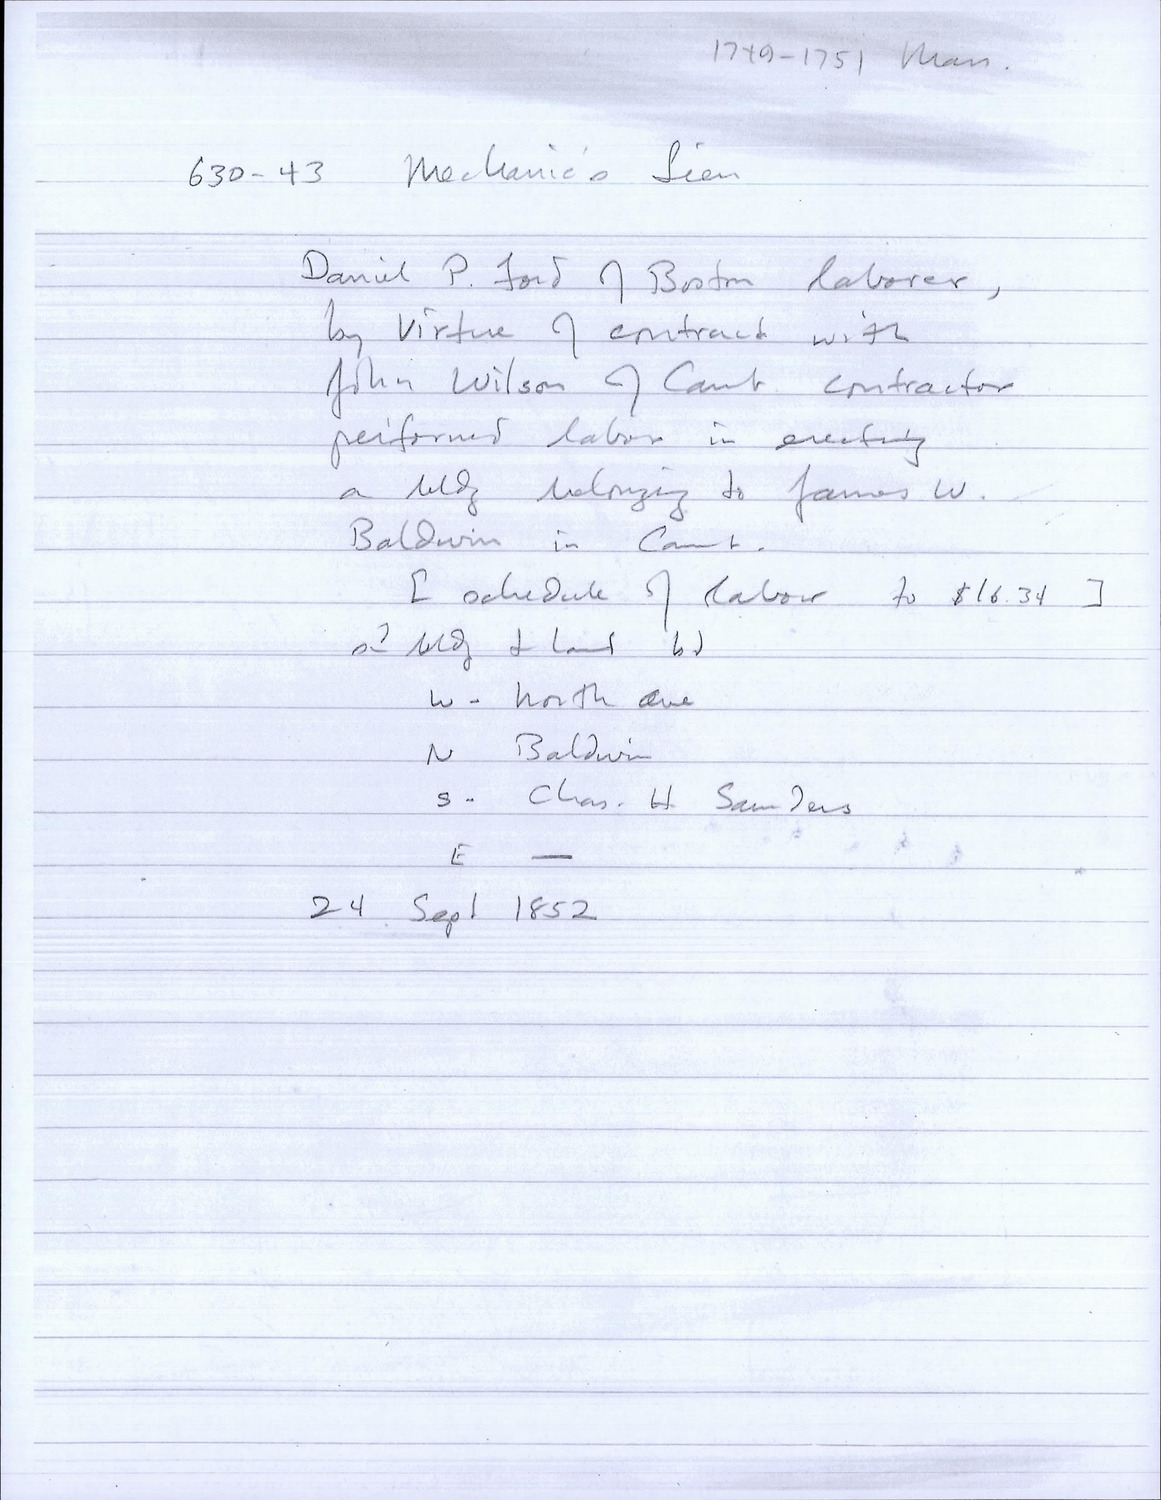 1749-1751 Mass.
630-43 Mechanic's Lien
Daniel P. Ford of Boston laborer,
by virtue of contract with
John Wilson of Camb. contractor
performed labor in erecting
a bldg belonging to James W.
Baldwin in Camb.
[ schedule of labour to $16.34 ]
sd bldg & land bd
W - North Ave
N Baldwin
S - Chas. H Saunders
E —
24 Sept 1852